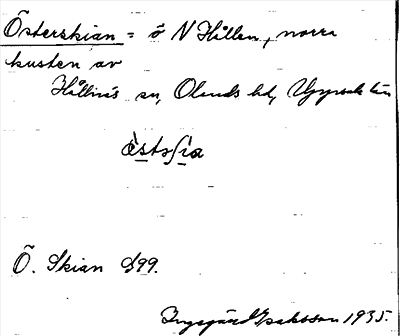 Österskian = ö N Hållen, norra
kusten av
Hållnäs sn, Olands hd, Uppsala län
Ö. Skian G99.
Ingegärd Isaksson 1935.